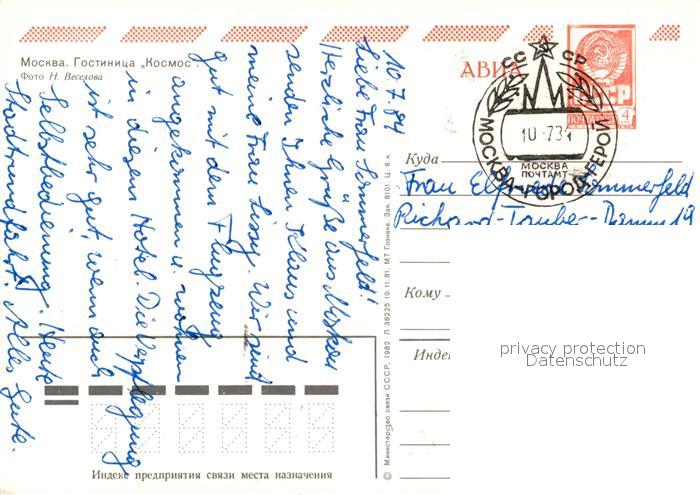 Москва. Гостиница „Космос".
Фото Н. Веселова
АВИА
СС СР
МОСКВА
ПОЧТАМТ
МОСКВА-ГОРОД-ГЕРОЙ
4
Куда
Frau Sommerfeld
Richard-Tauber-Damm 19
Кому
Индек
privacy protection
Datenschutz
10.7.84
Liebe Frau Sommerfeld!
Herzliche Grüße aus Moskau
senden Ihnen Klaus und
meine Frau Sissy. Wir sind
gut mit dem Flugzeug
angekommen u. wohnen
in diesem Hotel. Die Verpflegung
ist sehr gut, wenn auch
Selbstbedienung. Heute
Stadtrundfahrt. Alles Gute.
Индекс предприятия связи места назначения
© Министерство связи СССР, 1982 Л 38225 10.11.81. МТ Гознака. Зак. 8101. Ц. 6 к.